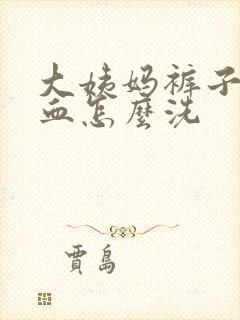 大姨妈裤子
血怎麼洗
賈島